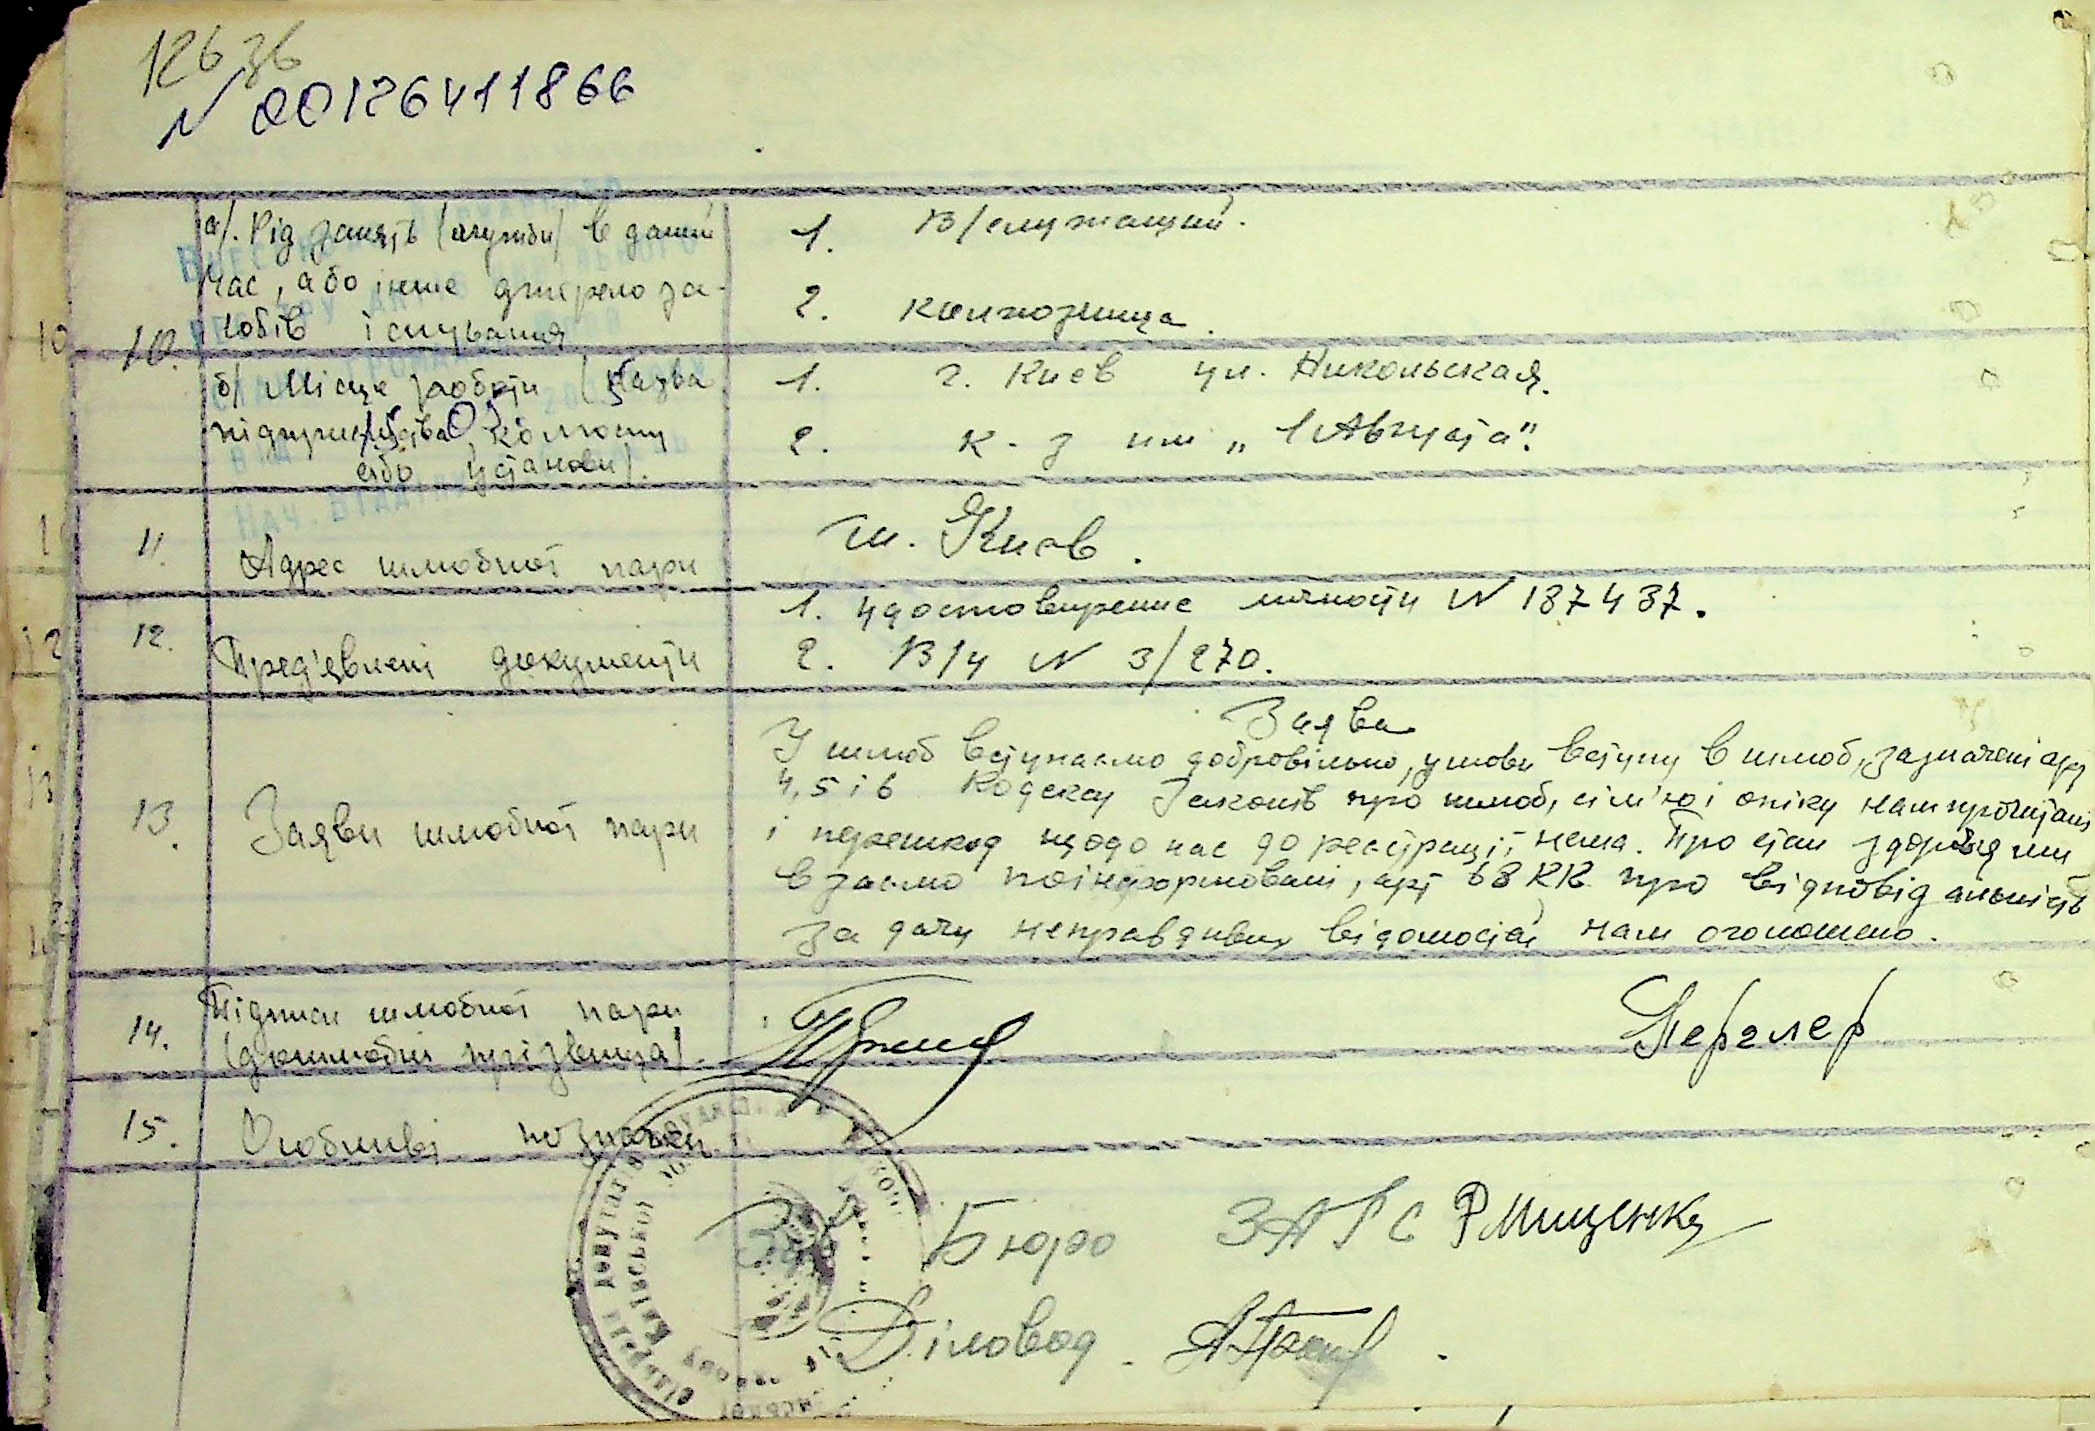 126 зв
N 00126411866
а/. Рід занять (служби) в даний
час, або інше джерело за-
собів існування
1. В/служащий.
2. колхозница.
10.
б/ Місце роботи (назва
підприємства, колгоспу
або установи).
1. г. Киев ул. Никольская.
2. к-з им „1 Августа".
11. Адрес шлюбної пари
м. Киев.
12. Пред'явлені документи
1. удостовирение личности N 187437.
2. В/ч N 3/270.
13. Заяви шлюбної пари
Заява
У шлюб вступаємо добровільно, умови вступу в шлюб, зазначені арт
4, 5 і 6 Кодексу Законів про шлюб, сім'ю і опіку нам прочитані
і перешкод щодо нас до реєстрації нема. Про стан здоров'я ми
взаємо поінформовані, арт 68 КК про відповідальність
за дачу неправдивих відомостей нам оголошено.
14. Підписи шлюбної пари
(дошлюбні прізвища).
Перглер
15. Особливі позначки
Зав Бюро ЗАГС Р Мищенко
Діловод
Київської